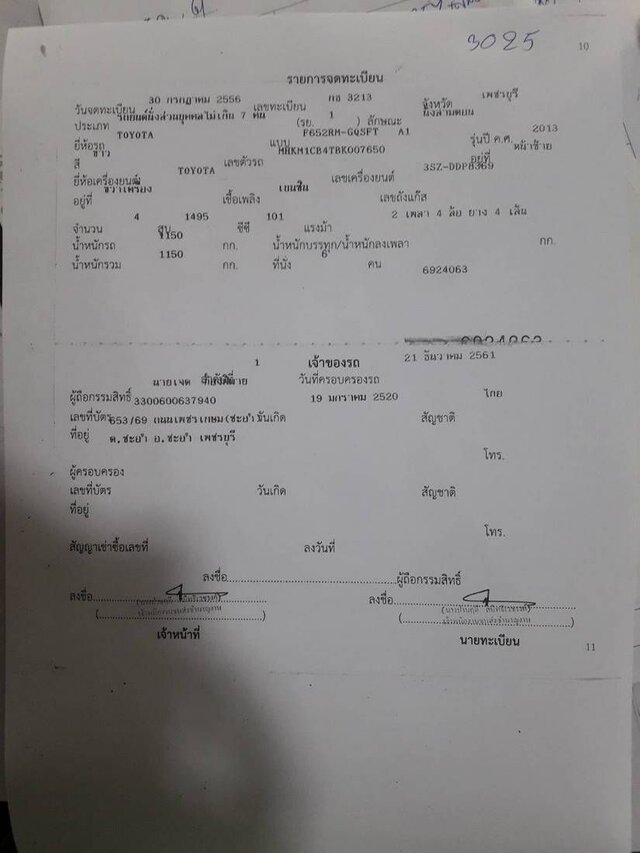 3025
10
รายการจดทะเบียน
วันจดทะเบียน 30 กรกฎาคม 2556 เลขทะเบียน กธ 3213 จังหวัด เพชรบุรี
ประเภท รถยนต์นั่งส่วนบุคคลไม่เกิน 7 คน (รย. 1 ) ลักษณะ นั่งสามตอน
ยี่ห้อรถ TOYOTA แบบ F652RM-GQSFT A1 รุ่นปี ค.ศ. 2013
สี ขาว เลขตัวรถ MHKM1CB4TBK007650 อยู่ที่ หน้าซ้าย
ยี่ห้อเครื่องยนต์ TOYOTA เลขเครื่องยนต์ 3SZ-DDP8369
อยู่ที่ ขวาเครื่อง เชื้อเพลิง เบนซิน เลขถังแก๊ส
จำนวน 4 สูบ 1495 ซีซี 101 แรงม้า 2 เพลา 4 ล้อ ยาง 4 เส้น
น้ำหนักรถ 1150 กก. น้ำหนักบรรทุก/น้ำหนักลงเพลา กก.
น้ำหนักรวม 1150 กก. ที่นั่ง 6 คน
6924063
1 เจ้าของรถ 21 ธันวาคม 2561
ผู้ถือกรรมสิทธิ์ นายเจด วันที่ครอบครองรถ
เลขที่บัตร 3300600637940 วันเกิด 19 มกราคม 2520 สัญชาติ ไทย
ที่อยู่ 653/69 ถนนเพชรเกษม(ชะอำ)
ต.ชะอำ อ.ชะอำ เพชรบุรี
โทร.
ผู้ครอบครอง
เลขที่บัตร วันเกิด สัญชาติ
ที่อยู่
โทร.
สัญญาเช่าซื้อเลขที่ ลงวันที่
ลงชื่อ ผู้ถือกรรมสิทธิ์
ลงชื่อ ลงชื่อ
เจ้าหน้าที่ นายทะเบียน
11